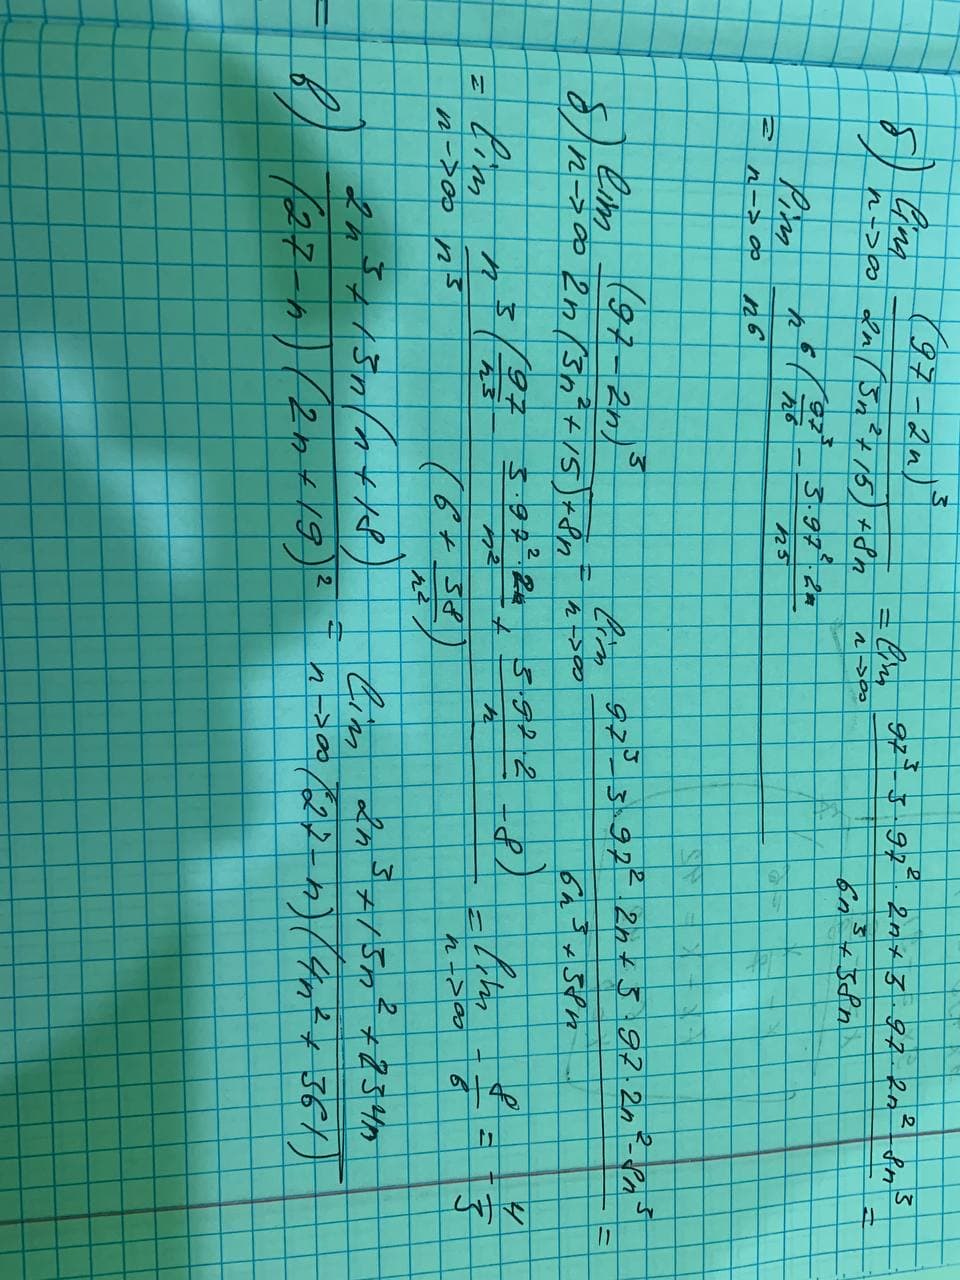 б) lim n->∞ (97-2n)³ / (2n(3n²+15)+8n) = lim n->∞ (97³-3·97²·2n+3·97·2n²-8n³) / (6n³+38n) =
= lim n->∞ n⁶(97³/n⁶ - 3·97²·2n/n⁵ / n⁶
б) lim n->∞ (97-2n)³ / (2n(3n²+15)+8n) = lim n->∞ (97³-3·97²·2n+3·97·2n²-8n³) / (6n³+38n) =
= lim n->∞ n³(97/n³ - 3·97²·2/n² + 3·97·2/n - 8) / n³(6+38/n²) = lim n->∞ -8/6 = -4/3
в) (2n³+13n(n+18)) / ((27-n)(2n+19)²) = lim n->∞ (2n³+13n²+234n) / ((27-n)(4n²+361))